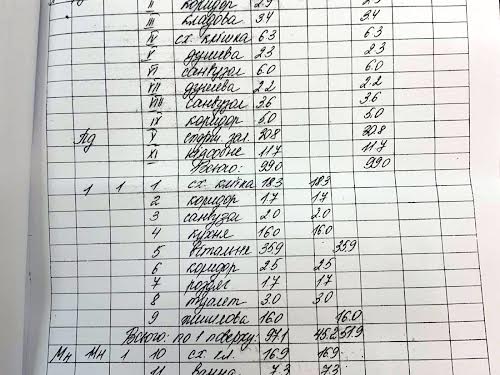 II коридор 29 29
III кладова 3.4 3.4
IV сх. клітка 6.3 6.3
V душева 2.3 2.3
VI санвузол 6.0 6.0
VII душева 2.2 2.2
VIII санвузол 3.6 3.6
IX коридор 5.0 5.0
Пд X спорт. зал. 30.8
XI підсобне 11.7 11.7
Всього: 99.0 99.0
1 1 1 сх. клітка 18.3 18.3
2 коридор 1.7 1.7
3 санвузол 2.0 2.0
4 кухня 16.0 16.0
5 вітальня 35.9 35.9
6 коридор 2.5 2.5
7 роздяг 1.7 1.7
8 туалет 3.0 3.0
9 житлова 16.0 16.0
Всього: по 1 поверху: 97.1 45.2 51.9
Мн Мн 1 10 сх. кл. 16.9 16.9
11 ванна 7.3 7.3